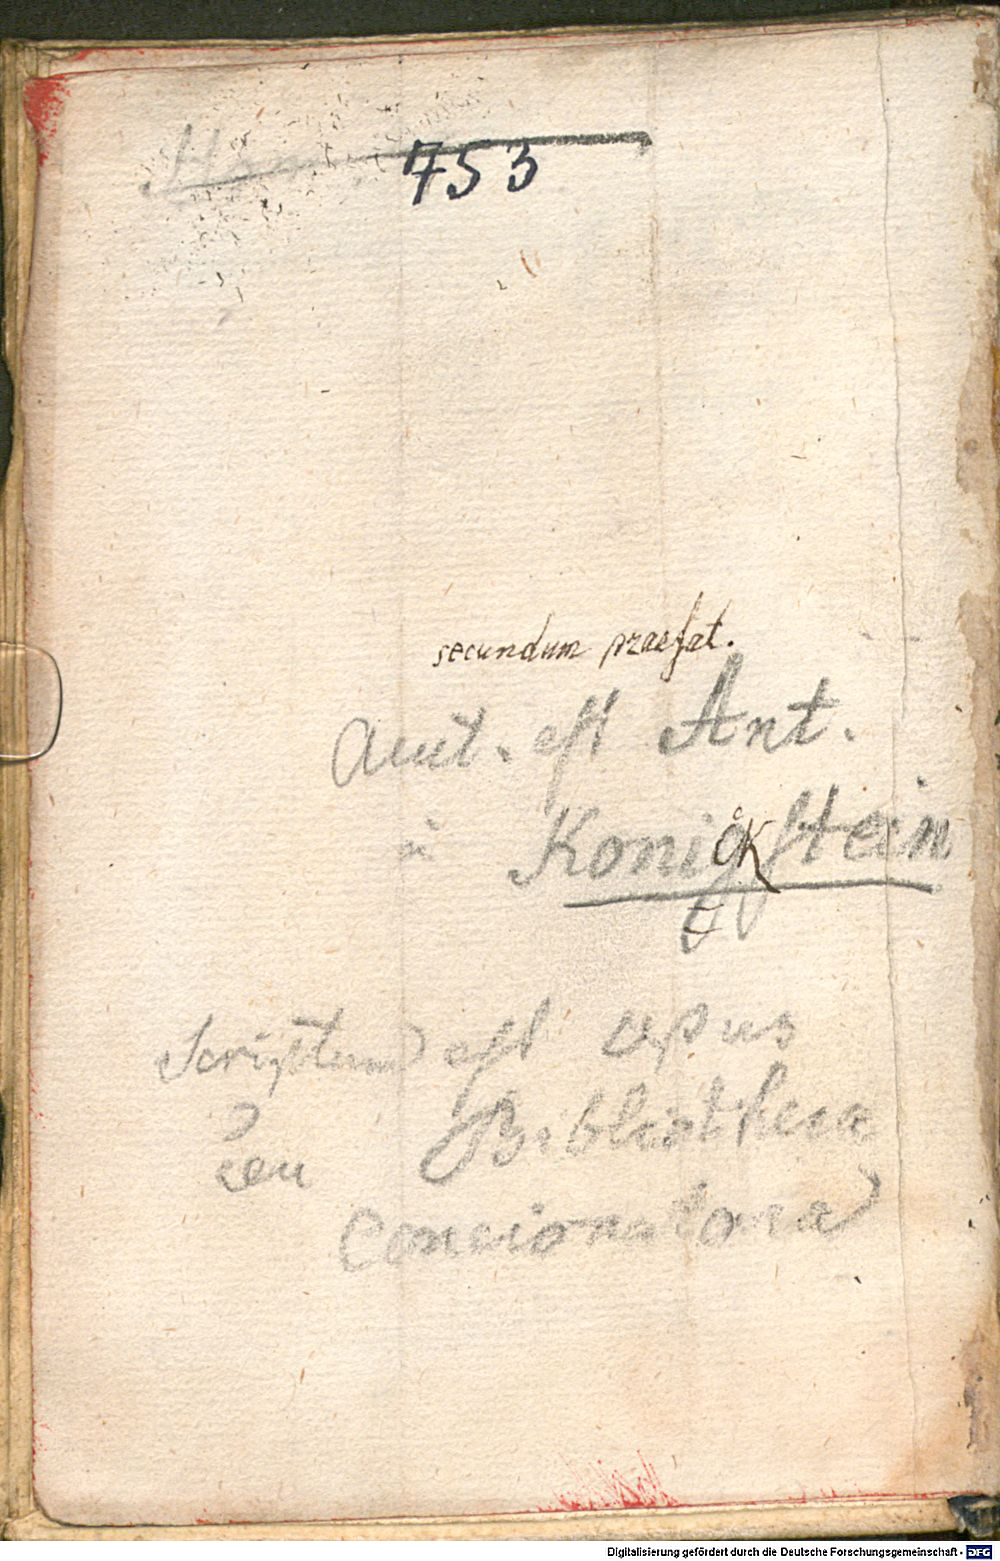 753
secundum praefat.
Aut. est Ant.
à Konigstein
ck
Scriptum est opus
seu Bibliotheca
Concionatoria
Digitalisierung gefördert durch die Deutsche Forschungsgemeinschaft - DFG